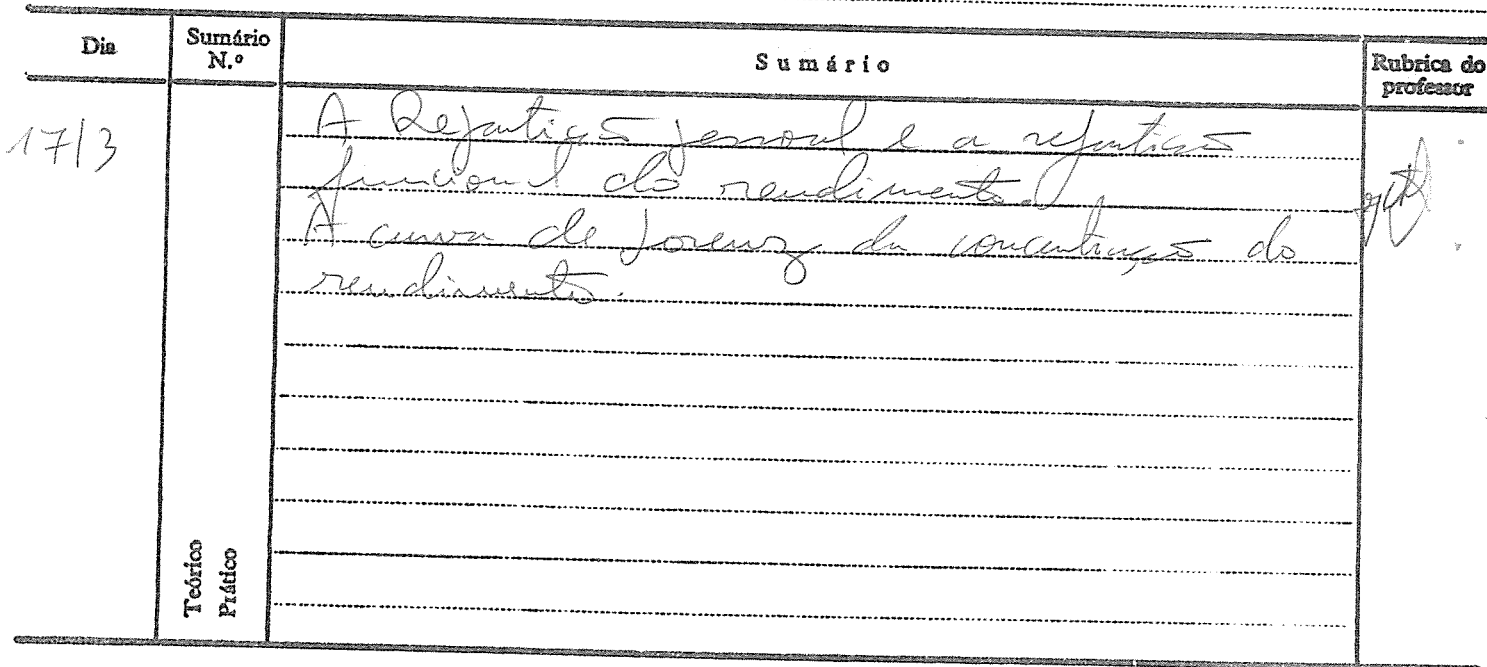 Dia
Sumário
N.º
Sumário
Rubrica do
professor
17/3
A Repartição pessoal e a repartição
funcional do rendimento.
A curva de Lorenz da concentração do
rendimento.
Teórico
Prático